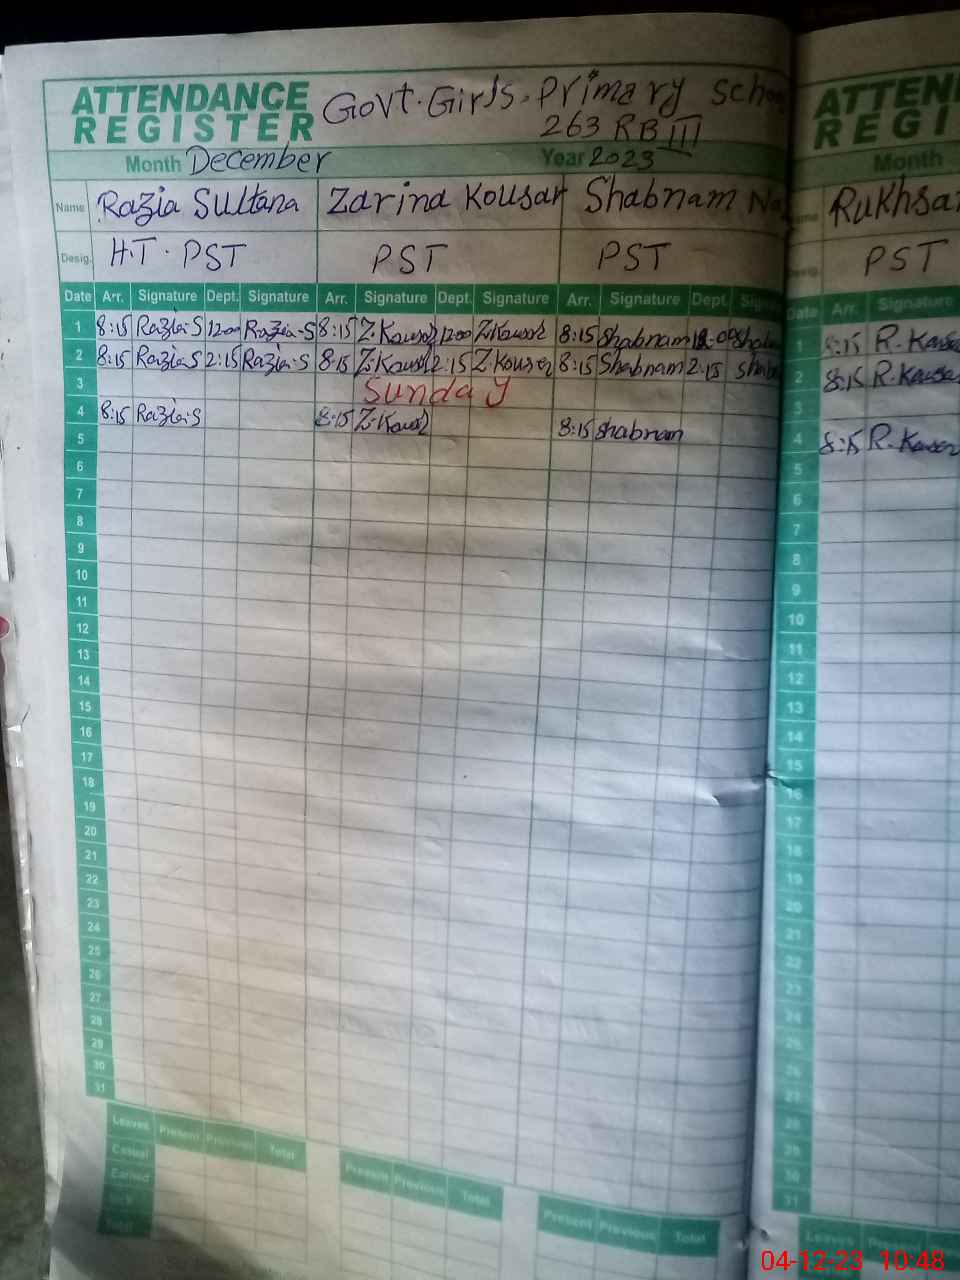 ATTENDANCE REGISTER Govt. Girls. Primary School
263 RB III
Month December Year 2023
Name Razia Sultana Zarina Kousar Shabnam
Desig. H.T. PST PST PST
Date Arr. Signature Dept. Signature Arr. Signature Dept. Signature Arr. Signature Dept.
1 8:15 Razia-S 12:00 Razia-S 8:15 Z.Kousar 12:00 Z.Kousar 8:15 Shabnam
2 8:15 Razia S 2:15 Razia-S 8:15 Z.Kousar 2:15 Z.Kouser 8:15 Shabnam 2:15
3 Sunday
4 8:15 Razia-S 8:15 Z.Kousar 8:15 Shabnam
5
6
7
8
9
10
11
12
13
14
15
16
17
18
19
20
21
22
23
24
25
26
27
28
29
30
31
Leaves Present Previous Total Present Previous Total Present Previous Total
Casual
Earned
Month
PST
Date Arr. Signature
1 8:15 R.
2 8:15 R.
3
4 8:15 R. Kouser
5
6
7
8
9
10
11
12
13
14
15
16
17
18
19
20
21
22
23
24
25
26
27
28
29
30
31
Leaves Present
04-12-23 10:48